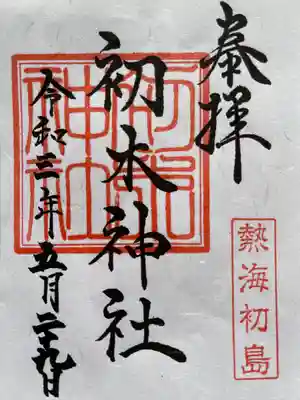 奉拝
熱海初島
初木神社
令和三年五月二十九日